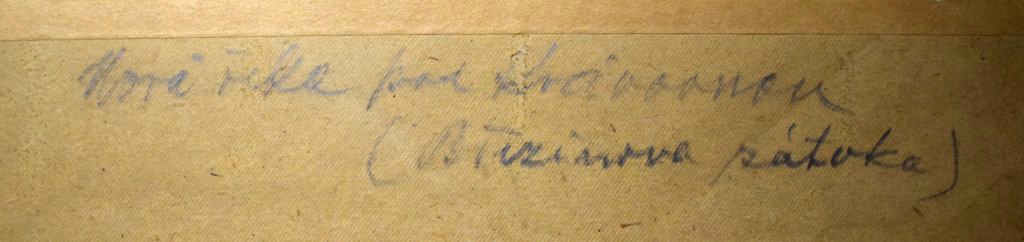 Nová řeka pod
(Březinova zátoka)